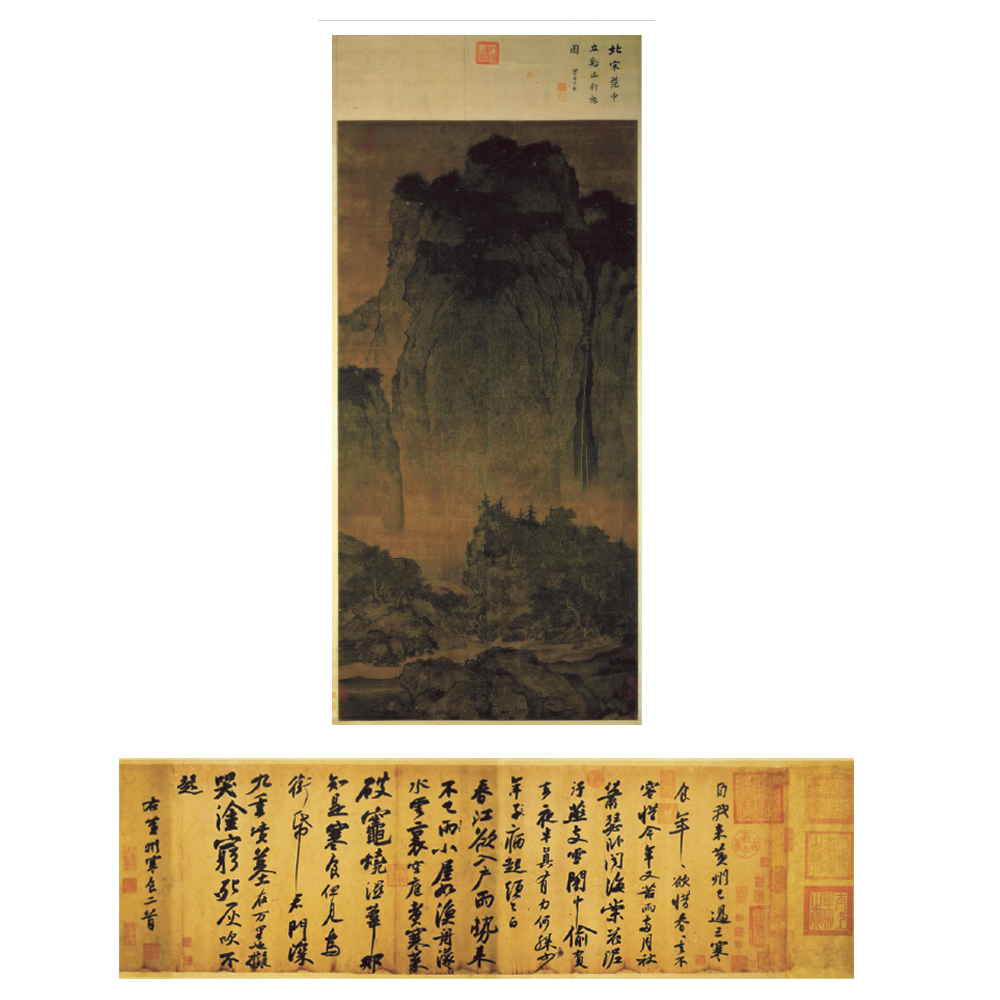 北宋范中
立谿山行旅
圖
自我來黃州已過三寒
食年〻欲惜春〻去不
容惜今年又苦雨兩月秋
蕭瑟臥聞海棠花泥
汙燕支雪闇中偷負
去夜半真有力何殊少
年子病起頭已白
春江欲入戶雨勢來
不已雨小屋如漁舟濛〻
水雲裏空庖煮寒菜
破竈燒濕葦那
知是寒食但見烏
銜帋君門深
九重墳墓在萬里也擬
哭塗窮死灰吹不
起
右黃州寒食二首